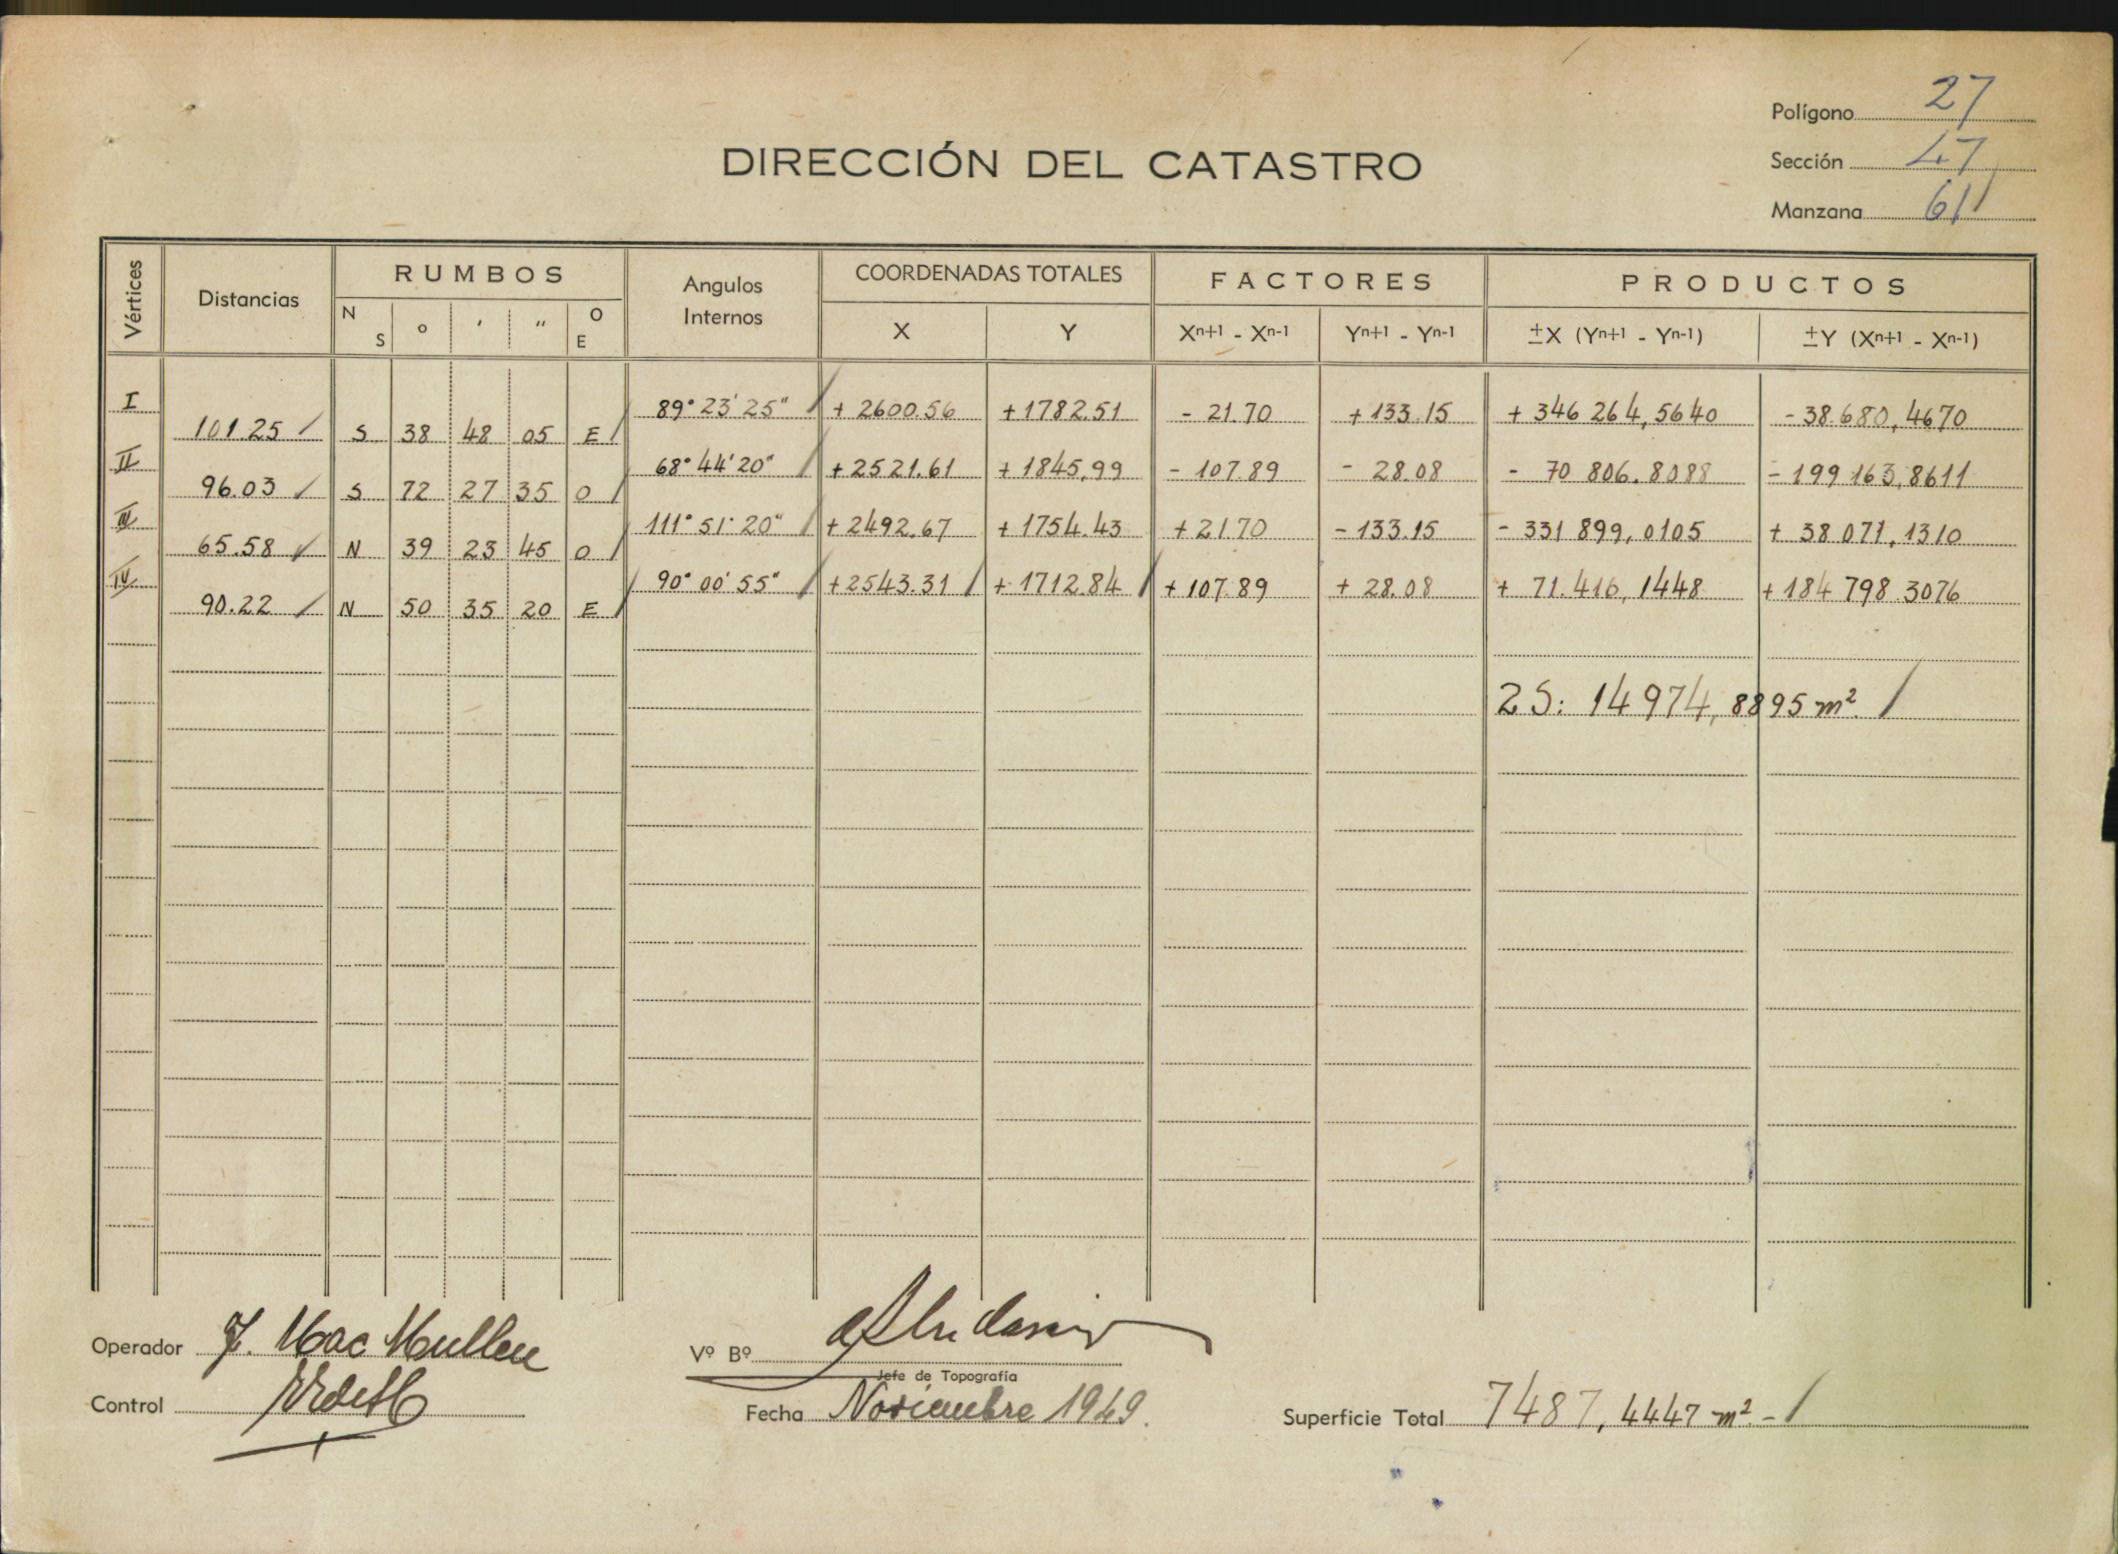 Polígono 27
DIRECCIÓN DEL CATASTRO
Sección 47
Manzana 611
Vértices Distancias RUMBOS Angulos Internos COORDENADAS TOTALES FACTORES PRODUCTOS
N S o ' " O E X Y Xn+1 - Xn-1 Yn+1 - Yn-1 ±X (Yn+1 - Yn-1) ±Y (Xn+1 - Xn-1)
I 89° 23' 25" + 2600.56 +1782.51 - 21.70 + 133.15 + 346 264,5640 - 38.680,4670
101.25 S 38 48 05 E
II 68° 44' 20" + 2521.61 + 1845,99 - 107.89 - 28.08 - 70 806.8088 - 199 163,8611
96.03 S 72 27 35 O
III 111° 51' 20" + 2492.67 + 1754.43 + 21 70 - 133.15 - 331 899,0105 + 38 071,1310
65.58 N 39 23 45 O
IV 90° 00' 55" + 2543.31 + 1712.84 + 107.89 + 28.08 + 71.416,1448 + 184 798 3076
90.22 N 50 35 20 E
2S: 14974,8895 m²
Operador J. Mac Mullen
Vº Bº
Jefe de Topografía
Control
Fecha Noviembre 1949.
Superficie Total 7487,4447 m² -